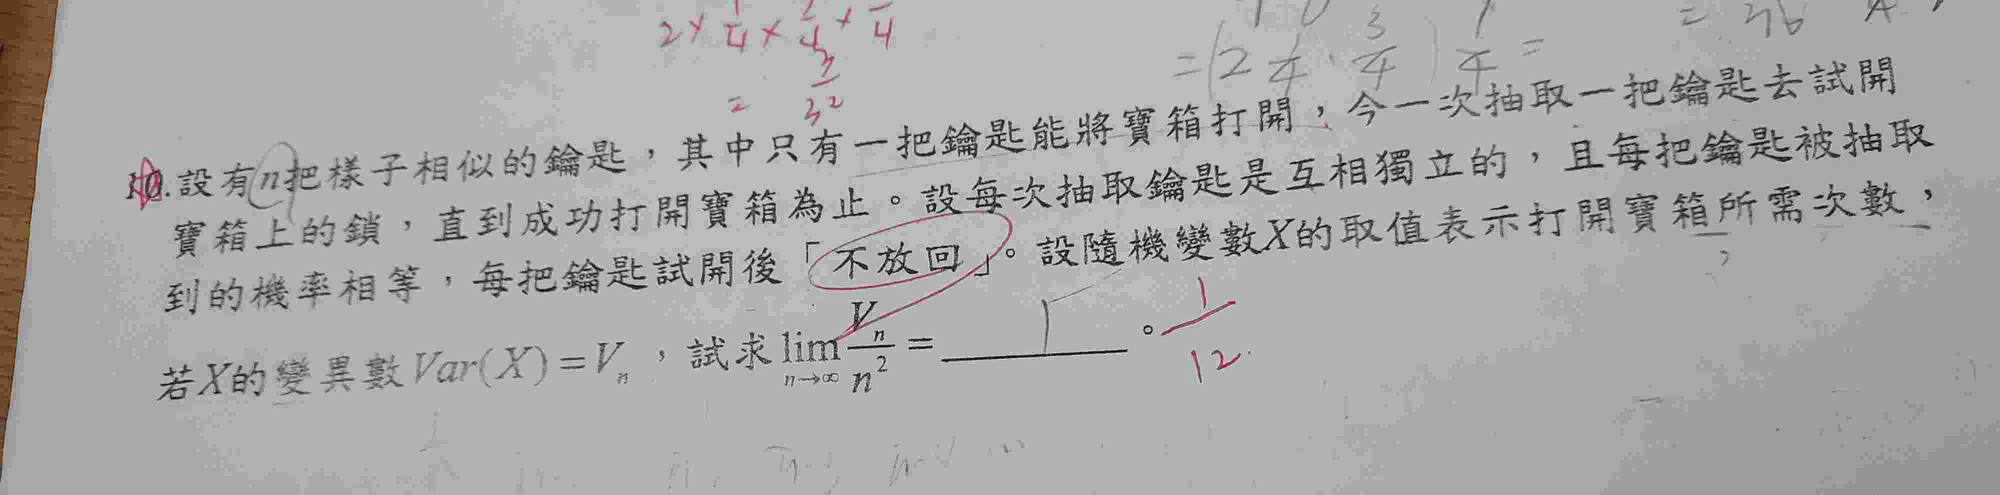 2 × 1/4 × 3/4 × /4
= 3/32
= (2 1/4 · 3/4) 1/4 =
10.設有n把樣子相似的鑰匙，其中只有一把鑰匙能將寶箱打開，今一次抽取一把鑰匙去試開
寶箱上的鎖，直到成功打開寶箱為止。設每次抽取鑰匙是互相獨立的，且每把鑰匙被抽取
到的機率相等，每把鑰匙試開後「不放回」。設隨機變數X的取值表示打開寶箱所需次數，
若X的變異數Var(X)=Vn，試求lim n→∞ Vn/n² = 1 。 1/12